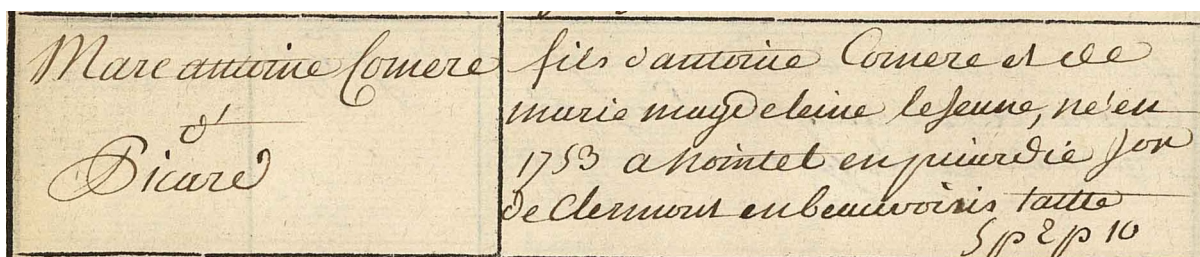 Marc antoine Comere
d'
Picard
fils d'antoine Comere et de
marie magdeleine lejeune, né en
1753 a nointel en picardie Jon
de Clermont en beauvoisis taille
5 p 2 p 10